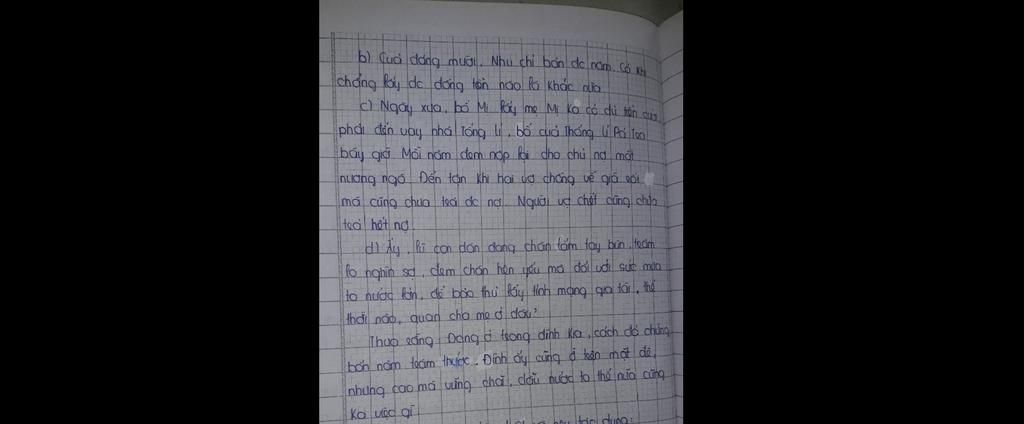 b) Cuả dáng mười. Nhu chỉ bán dc năm. Có khi
chẳng lấy dc dồng tiền nào là khác nữa
c) Ngày xưa, bố Mị lấy mẹ Mị ko có đủ tiền cưới
phải đến vay nhà Tống lí, bố của Thống lí Pá Tra
bây giờ Mỗi năm dem nộp lãi cho chủ nợ một
nương ngô Đến tận khi hai vợ chồng về già rồi
mà cũng chưa trả dc nợ. Người vợ chết cũng chưa
trả hết nợ
d) Ấy, lũ con dân dang chân lấm tay bùn, trăm
lo nghìn sợ, dem thân hèn yếu mà đối với sức mưa
to nước lớn, để bảo thủ lấy tính mạng gia tài, thế
thời nào, quan cha mẹ ở đâu?
Thưa rằng Dang ở trong đình kia, cách đó chừng
bốn năm trăm thước. Đình ấy cũng ở trên mặt đê,
nhưng cao mà vững chãi, dẫu nước to thế nữa cũng
ko việc gì
tác dụng: